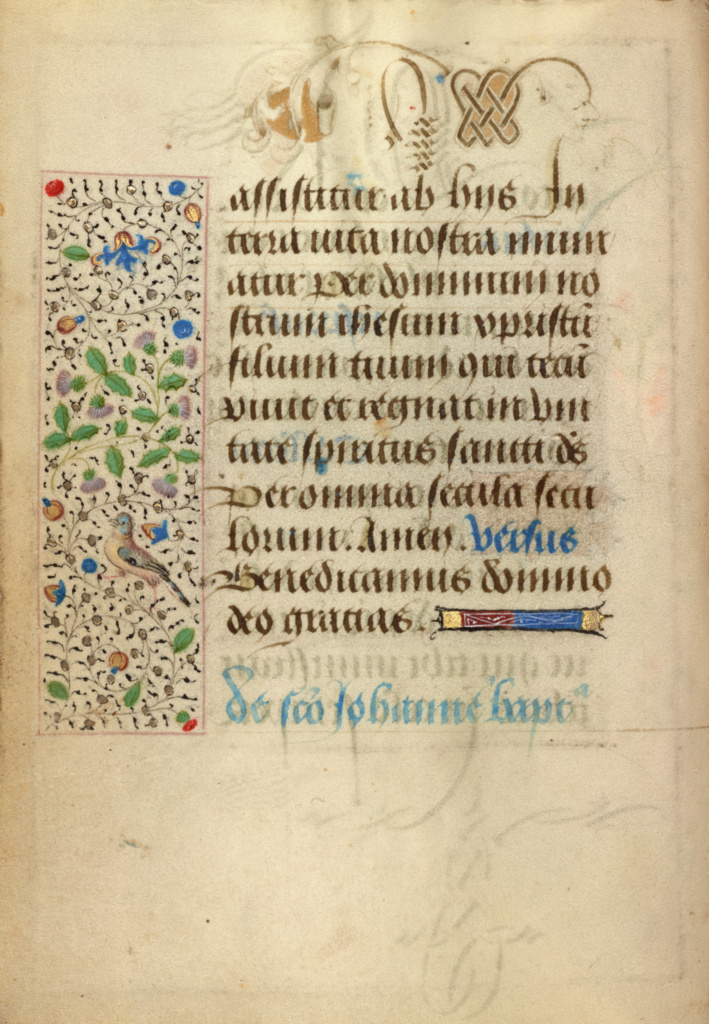 assistitur ab hijs In
terra vita nostra muni
atur Per dominum no
strum ihesum xpristū
filium tuum qui tecū
viuit et regnat in vni
tate spiritus sancti ds̄
Per omnia secula secu
lorum. Amen. versus
Benedicamus domino
deo gracias.
De scō Johanne bapt